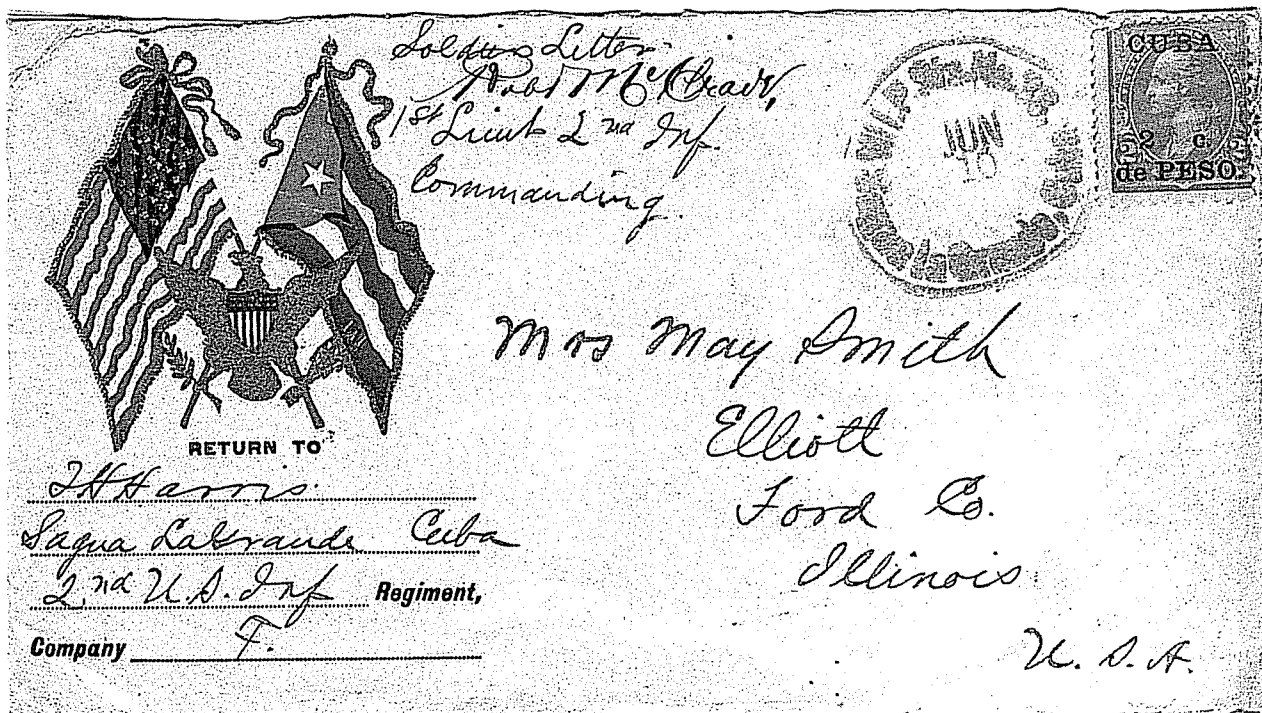 Soldiers Letter
Robt McCleave,
1st Lieut 2nd Inf.
Commanding.
JUN
10
CUBA
2 c.
de PESO
Mrs May Smith
Elliott
Ford Co.
Illinois
U. S. A.
RETURN TO
T H Harris.
Sagua LaGrande Cuba
2nd U.S. Inf Regiment,
Company F.